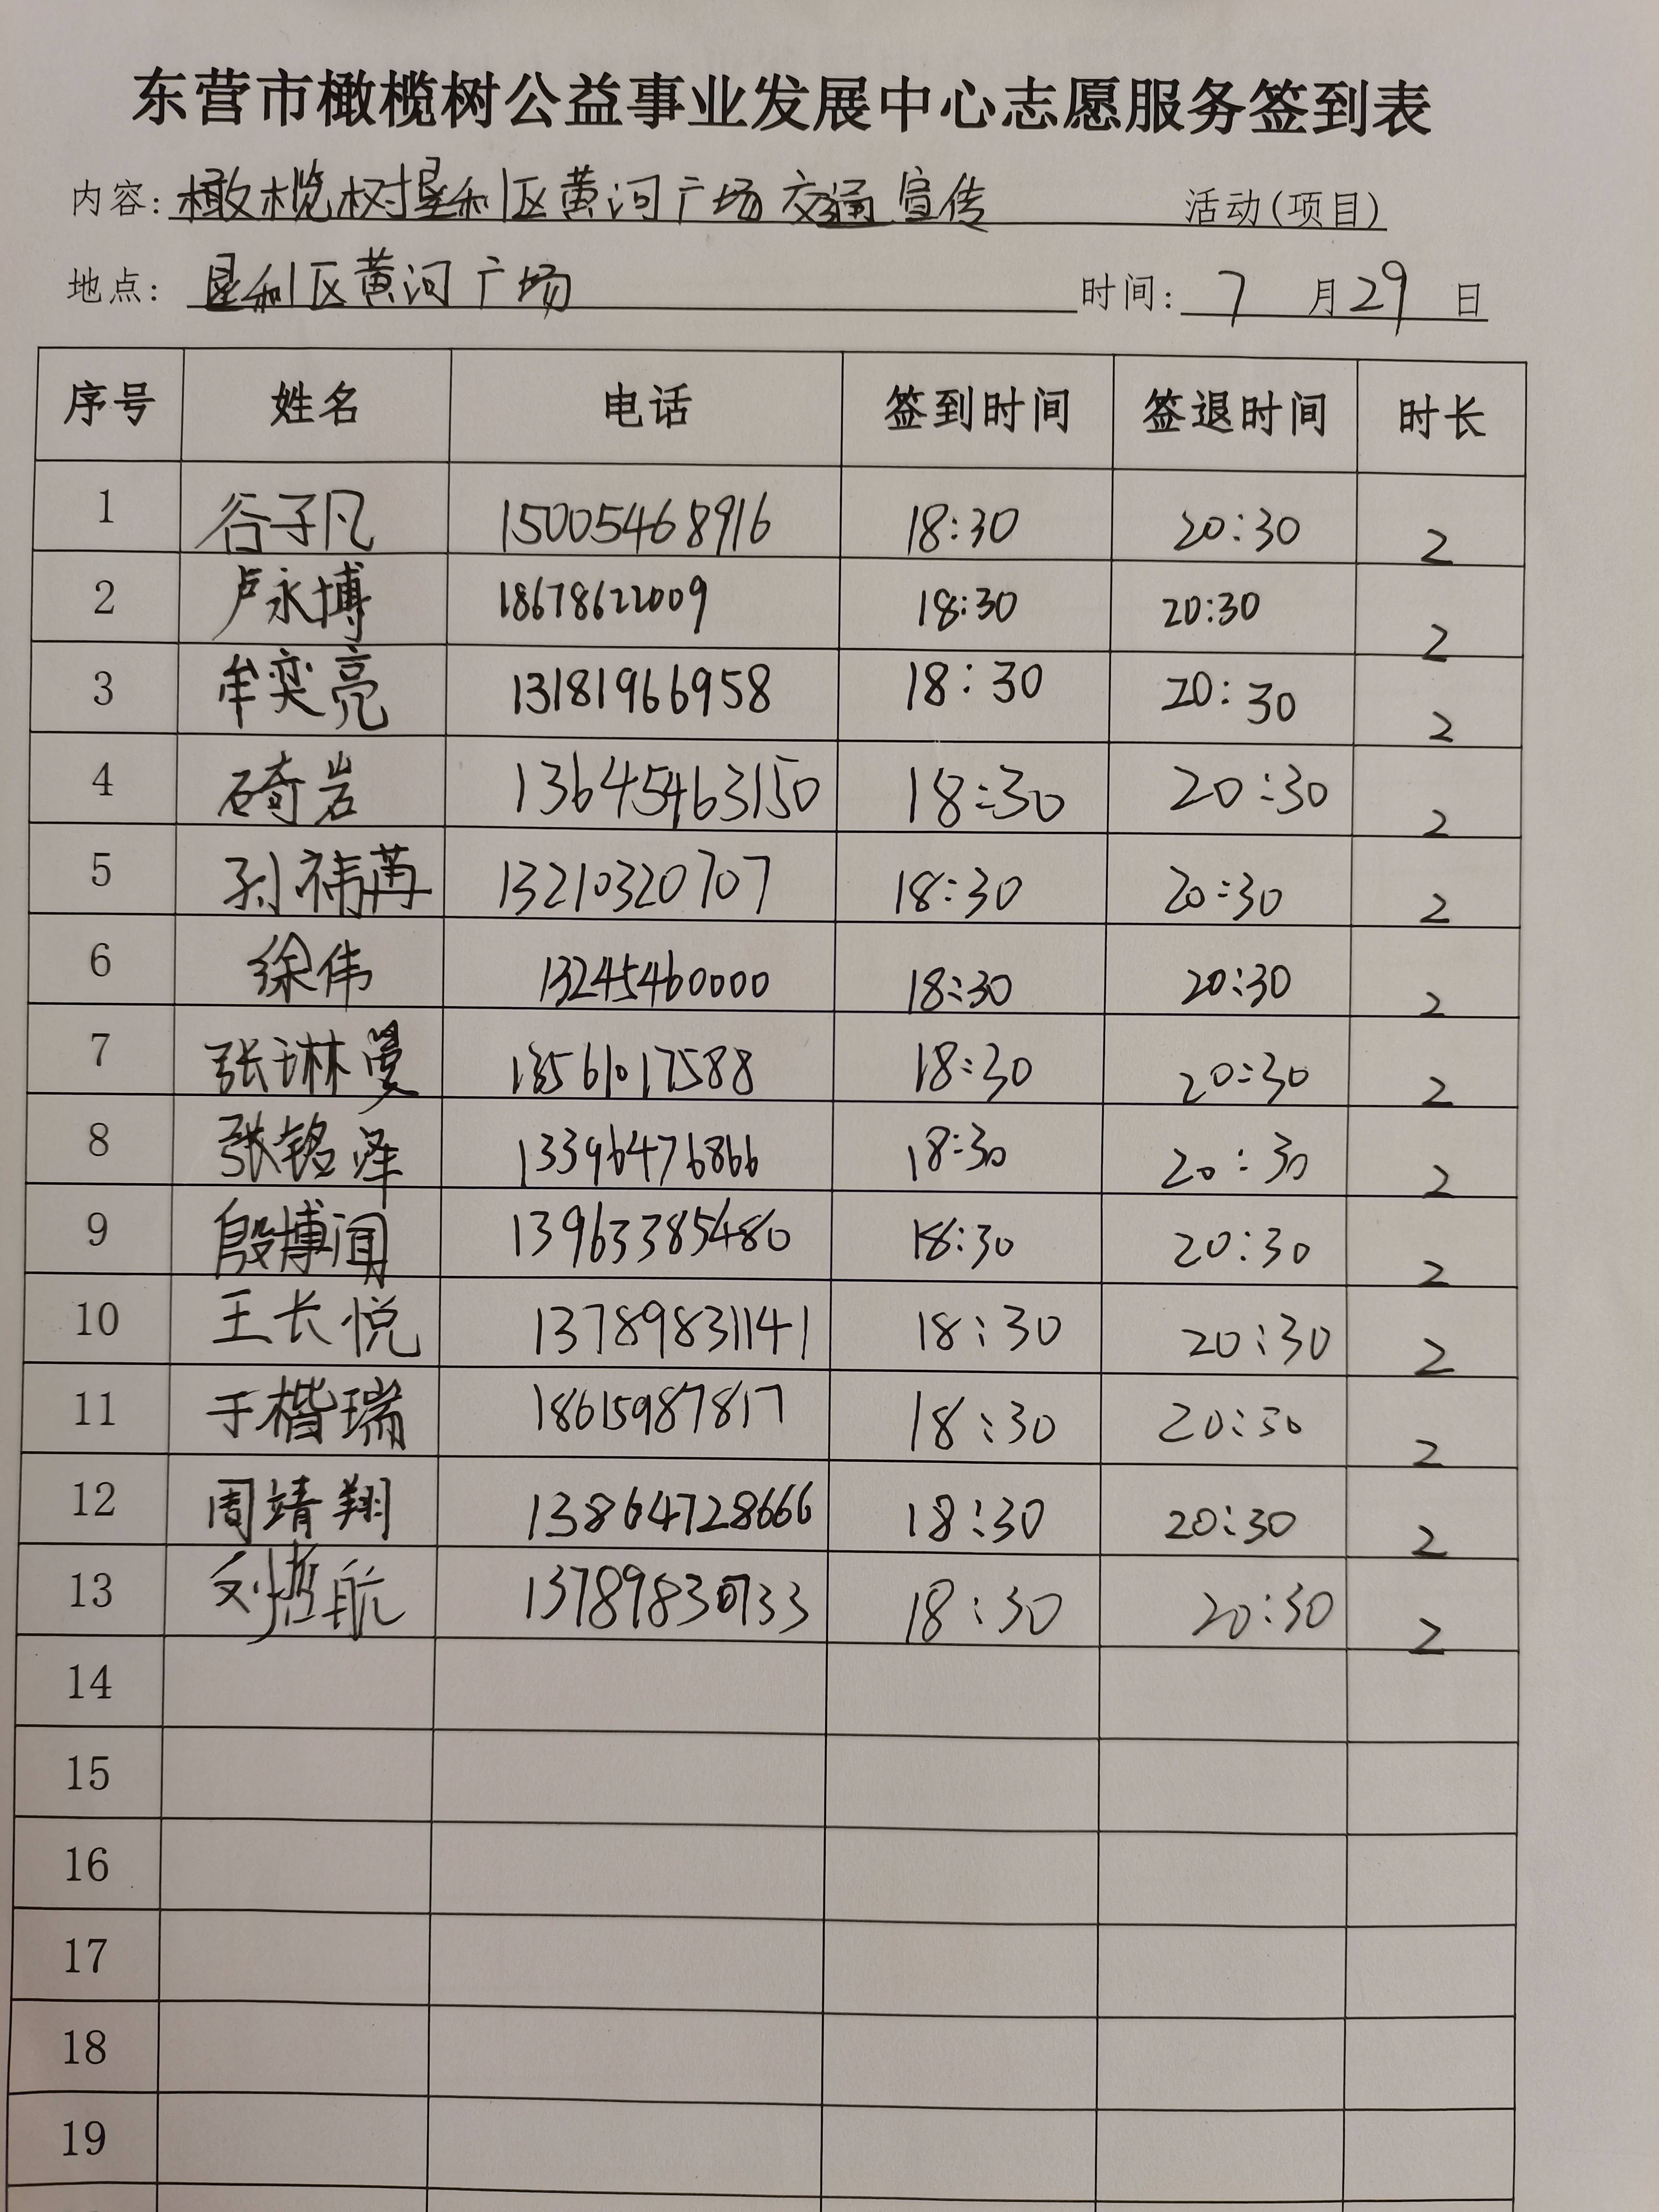 东营市橄榄树公益事业发展中心志愿服务签到表
内容: 橄榄树垦利区黄河广场交通宣传 活动(项目)
地点: 垦利区黄河广场 时间: 7 月 29 日
序号 姓名 电话 签到时间 签退时间 时长
1 谷子凡 15005468916 18:30 20:30 2
2 卢永博 18678622009 18:30 20:30 2
3 牟奕亮 13181966958 18:30 20:30 2
4 綦岩 13645463150 18:30 20:30 2
5 孙祎 13210320707 18:30 20:30 2
6 徐伟 13245460000 18:30 20:30 2
7 张琳曼 13561017588 18:30 20:30 2
8 张铭泽 13396476866 18:30 20:30 2
9 殷博闻 13963385480 18:30 20:30 2
10 王长悦 13789831141 18:30 20:30 2
11 于楷瑞 18615987817 18:30 20:30 2
12 周靖翔 13864728666 18:30 20:30 2
13 刘哲航 13789830733 18:30 20:30 2
14
15
16
17
18
19